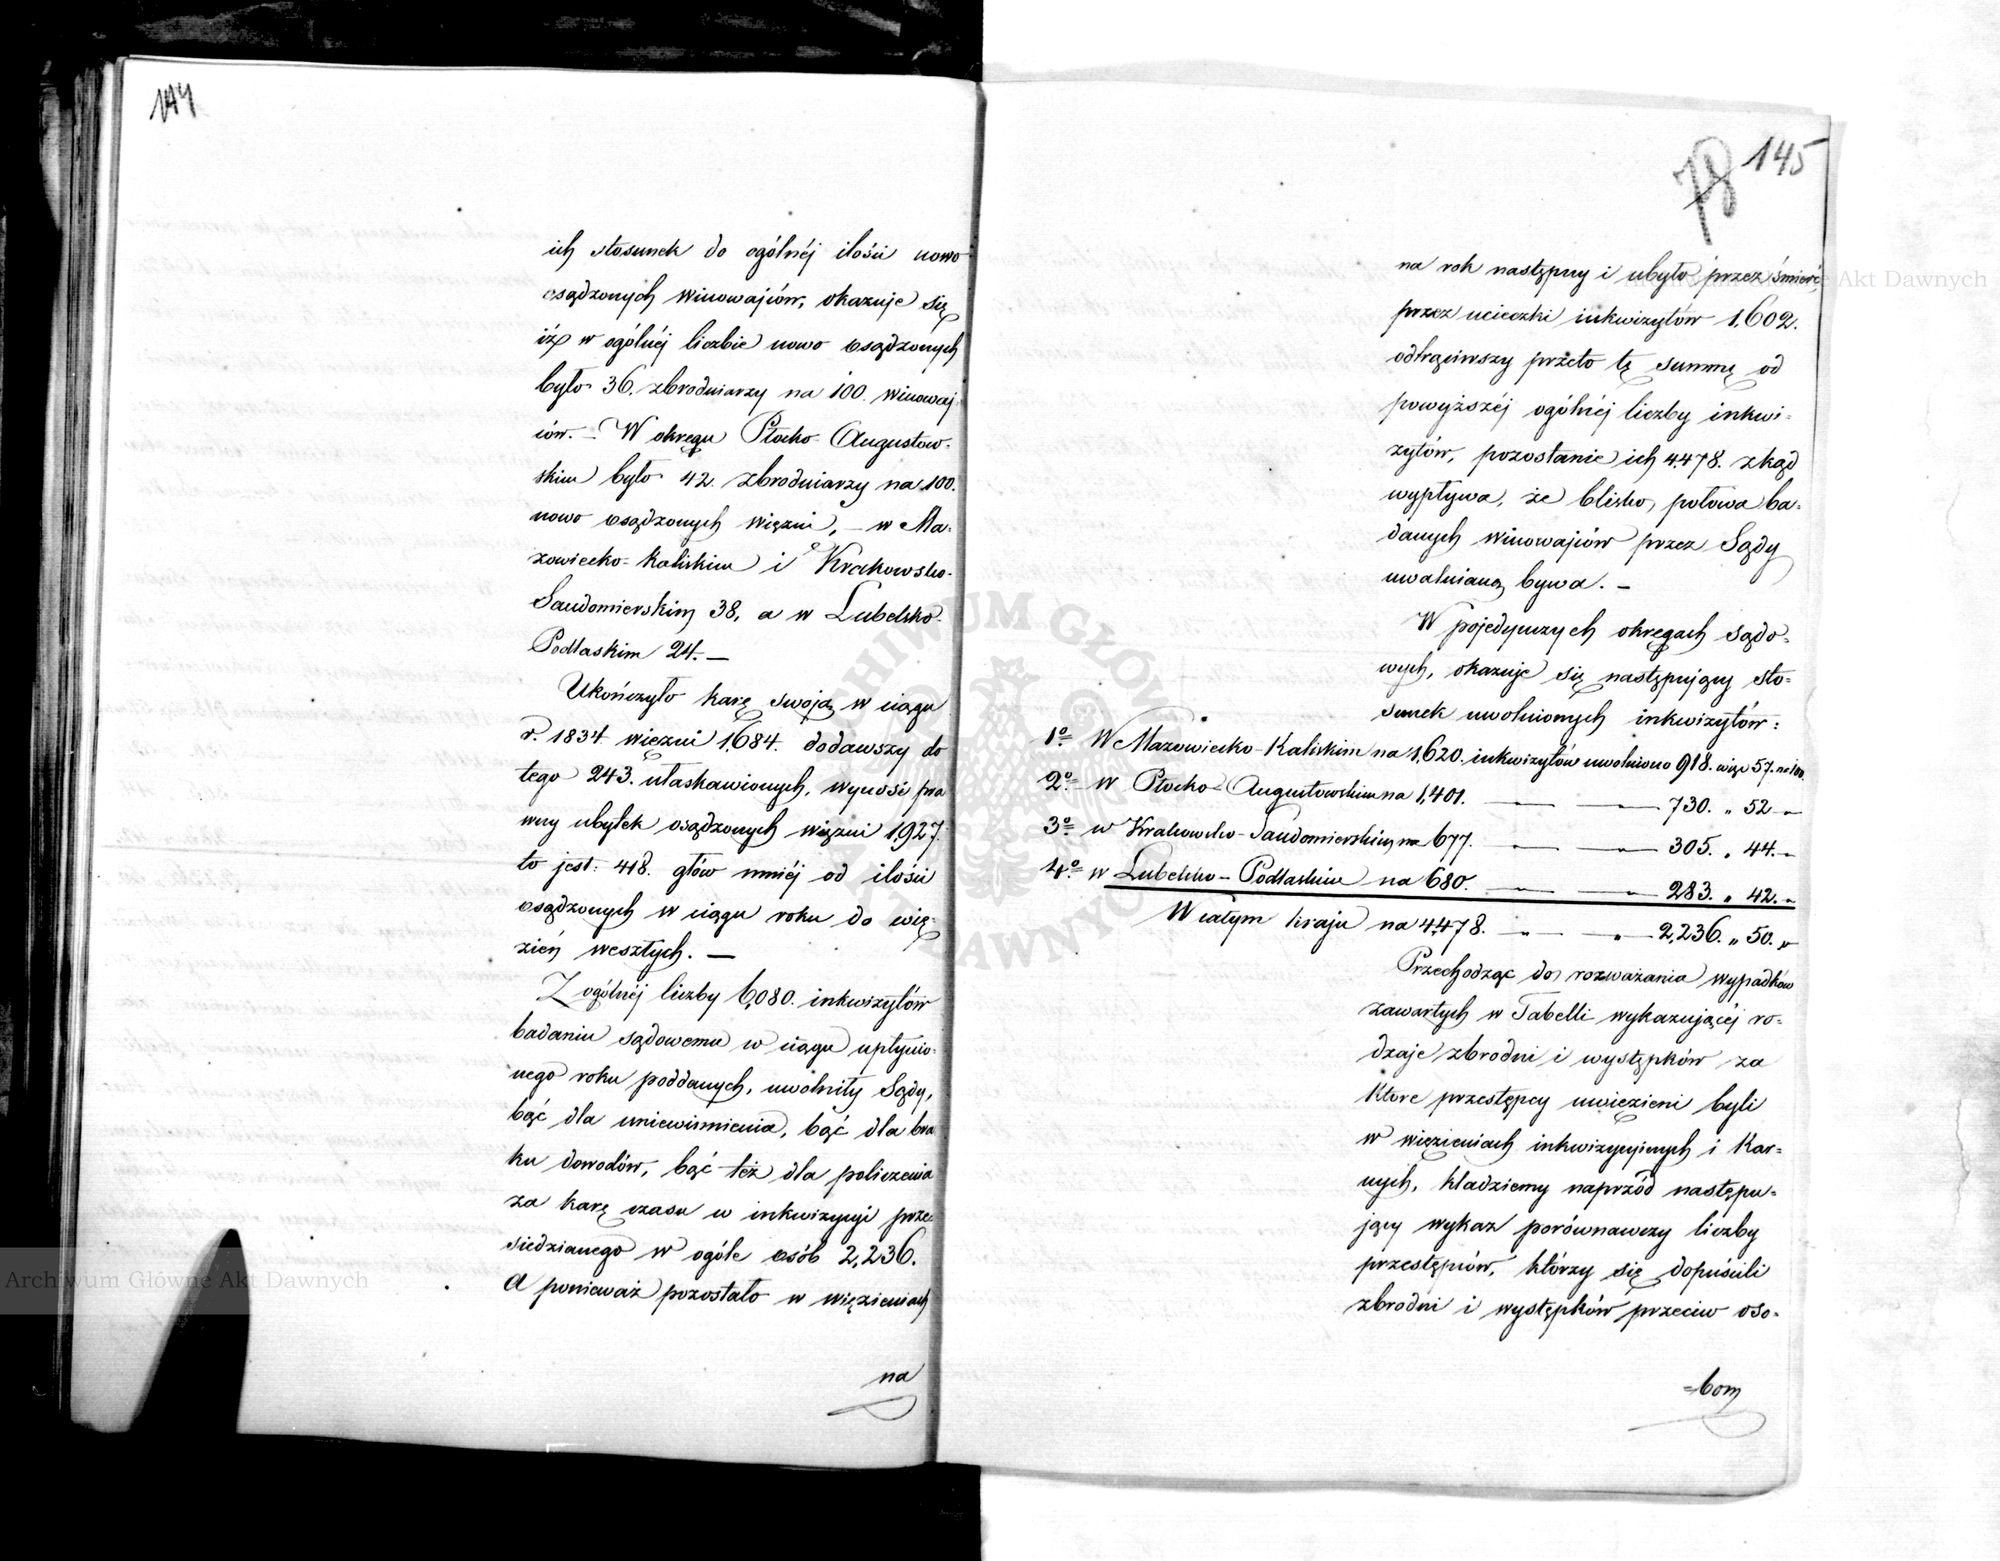 144
ich stosunek do ogólnéj ilości nowo
osądzonych winowajców, okazuje się
iż w ogólnéj liczbie nowo osądzonych
było 36. zbrodniarzy na 100. winowaj-
ców. – W okręgu Płocko-Augustow-
skim było 42. zbrodniarzy na 100.
nowo osądzonych więzni, – w Ma-
zowiecko-Kaliskim i Krakowsko-
Sandomierskim 38, a w Lubelsko-
Podlaskim 24. –
Ukończyło karę swoją w ciągu
r. 1834 więzni 1,684. dodawszy do
tego 243. ułaskawionych, wynosi pra
wny ubytek osądzonych więzni 1,927.
to jest: 418. głów mniéj od ilości
osądzonych w ciągu roku do wię-
zień weszłych. –
Z ogólnéj liczby 6,080. inkwizytów
badaniu sądowemu w ciągu upłynio-
nego roku poddanych, uwolniły Sądy,
bąć dla uniewinnienia, bąć dla bra
ku dowodów, bąć też dla policzenia
za karę czasu w inkwizycyi prze-
siedzianego w ogóle osób 2,236.
A ponieważ pozostało w więzieniach
na
78 145
na rok następny i ubyło przez śmierć,
przez ucieczki inkwizytów 1,602.
odtrąciwszy przeto tę summę od
powyższéj ogólnéj liczby inkwi-
zytów, pozostanie ich 4,478. zkąd
wypływa, że blisko połowa ba-
danych winowajców przez Sądy
uwalnianą bywa. –
W pojedynczych okręgach sądo-
wych, okazuje się następujący sto-
sunek uwolnionych inkwizytów:
1o. W Mazowiecko-Kaliskim na 1,620. inkwizytów uwolniono 918. więc 57. na 100.
2o. w Płocko-Augustowskim na 1,401. — „ — „ — 730. „ 52 „
3o. w Krakowsko-Sandomierskim na 677. — „ — „ — 305. „ 44. „
4o. w Lubelsko-Podlaskim na 680. — „ — „ — 283. „ 42. „
W całym kraju na 4,478. — „ — „ — 2,236. „ 50. „
Przechodząc do rozważania wypadków
zawartych w Tabelli wykazującéj ro-
dzaje zbrodni i występków za
które przestępcy uwięzieni byli
w więzieniach inkwizycyinych i Kar-
nych, kładziemy naprzód następu-
jący wykaz porównawczy liczby
przestępców, którzy się dopuścili
zbrodni i występków przeciw oso-
=bom
Archiwum Główne Akt Dawnych
ARCHIWUM GŁÓWNE AKT DAWNYCH
Archiwum Główne Akt Dawnych